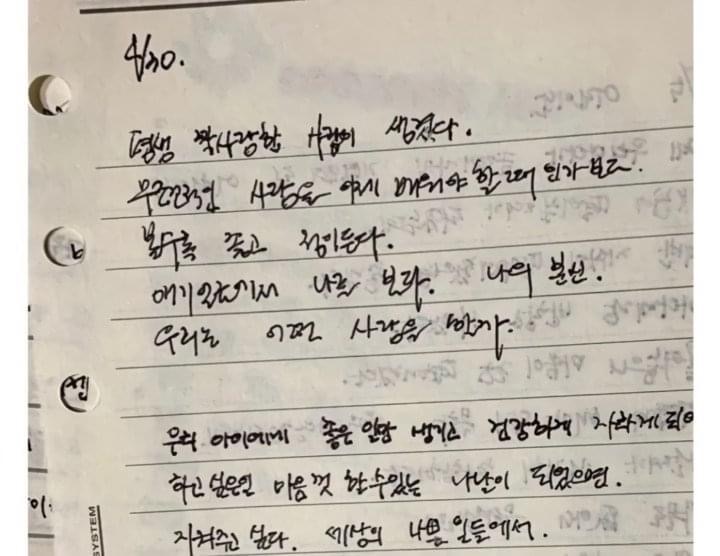 4/30.
평생 짝사랑할 사람이 생겼다.
무조건적인 사랑을 이제 배워야 할 때 인가보다.
볼수록 좋고 정이든다.
애기 얼굴에서 나를 보다. 나의 분신.
우리는 어떤 사랑을 할까.
우리 아이에게 좋은 일만 생기고 건강하게 자라게 되어
하고 싶은일 마음껏 할수있는 나날이 되었으면.
지켜주고 싶다. 세상의 나쁜 일들에서.
SYSTEM